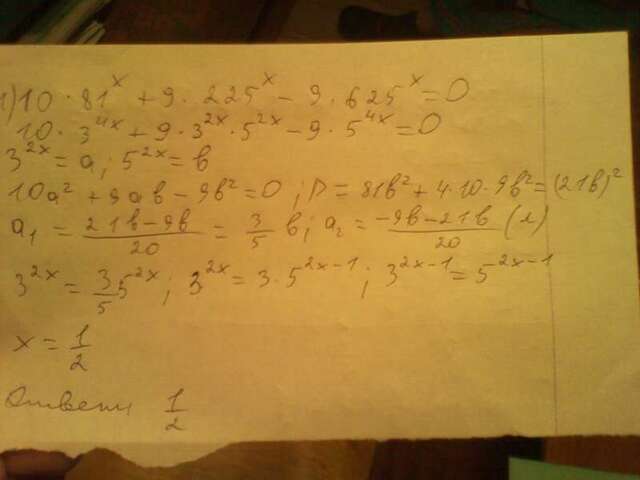 1) 10 · 81^x + 9 · 225^x - 9 · 625^x = 0
10 · 3^4x + 9 · 3^2x · 5^2x - 9 · 5^4x = 0
3^2x = a; 5^2x = в
10a² + 9aв - 9в² = 0; D = 81в² + 4·10·9в² = (21в)²
a₁ = (21в-9в)/20 = 3/5 в; a₂ = (-9в-21в)/20 (л)
3^2x = 3/5 5^2x; 3^2x = 3·5^2x-1; 3^2x-1 = 5^2x-1
x = 1/2
Ответ 1/2